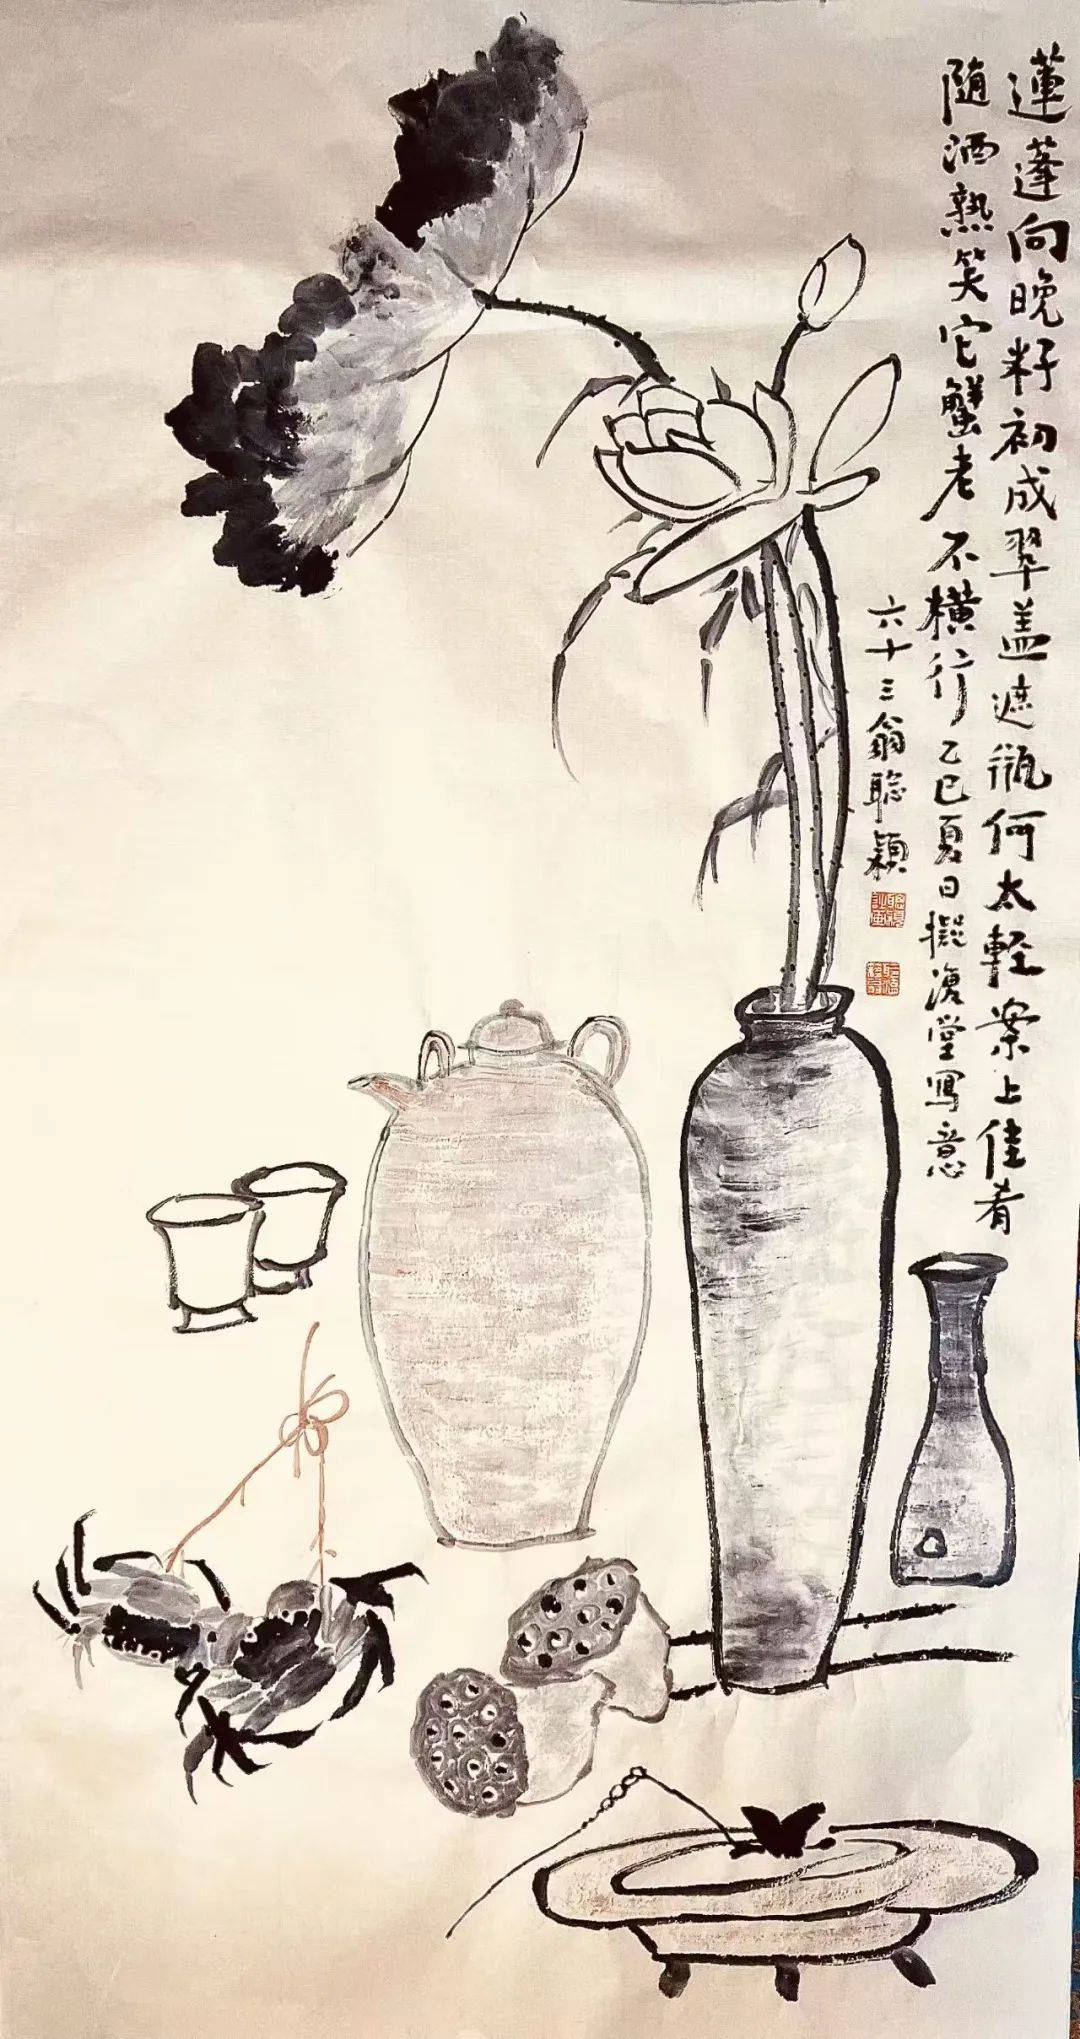 蓮蓬向晚籽初成翠盖遮瓶何太輕案上佳肴
隨酒熟笑它蟹老不橫行乙巳夏日擬滄堂寫意
六十三翁聪穎